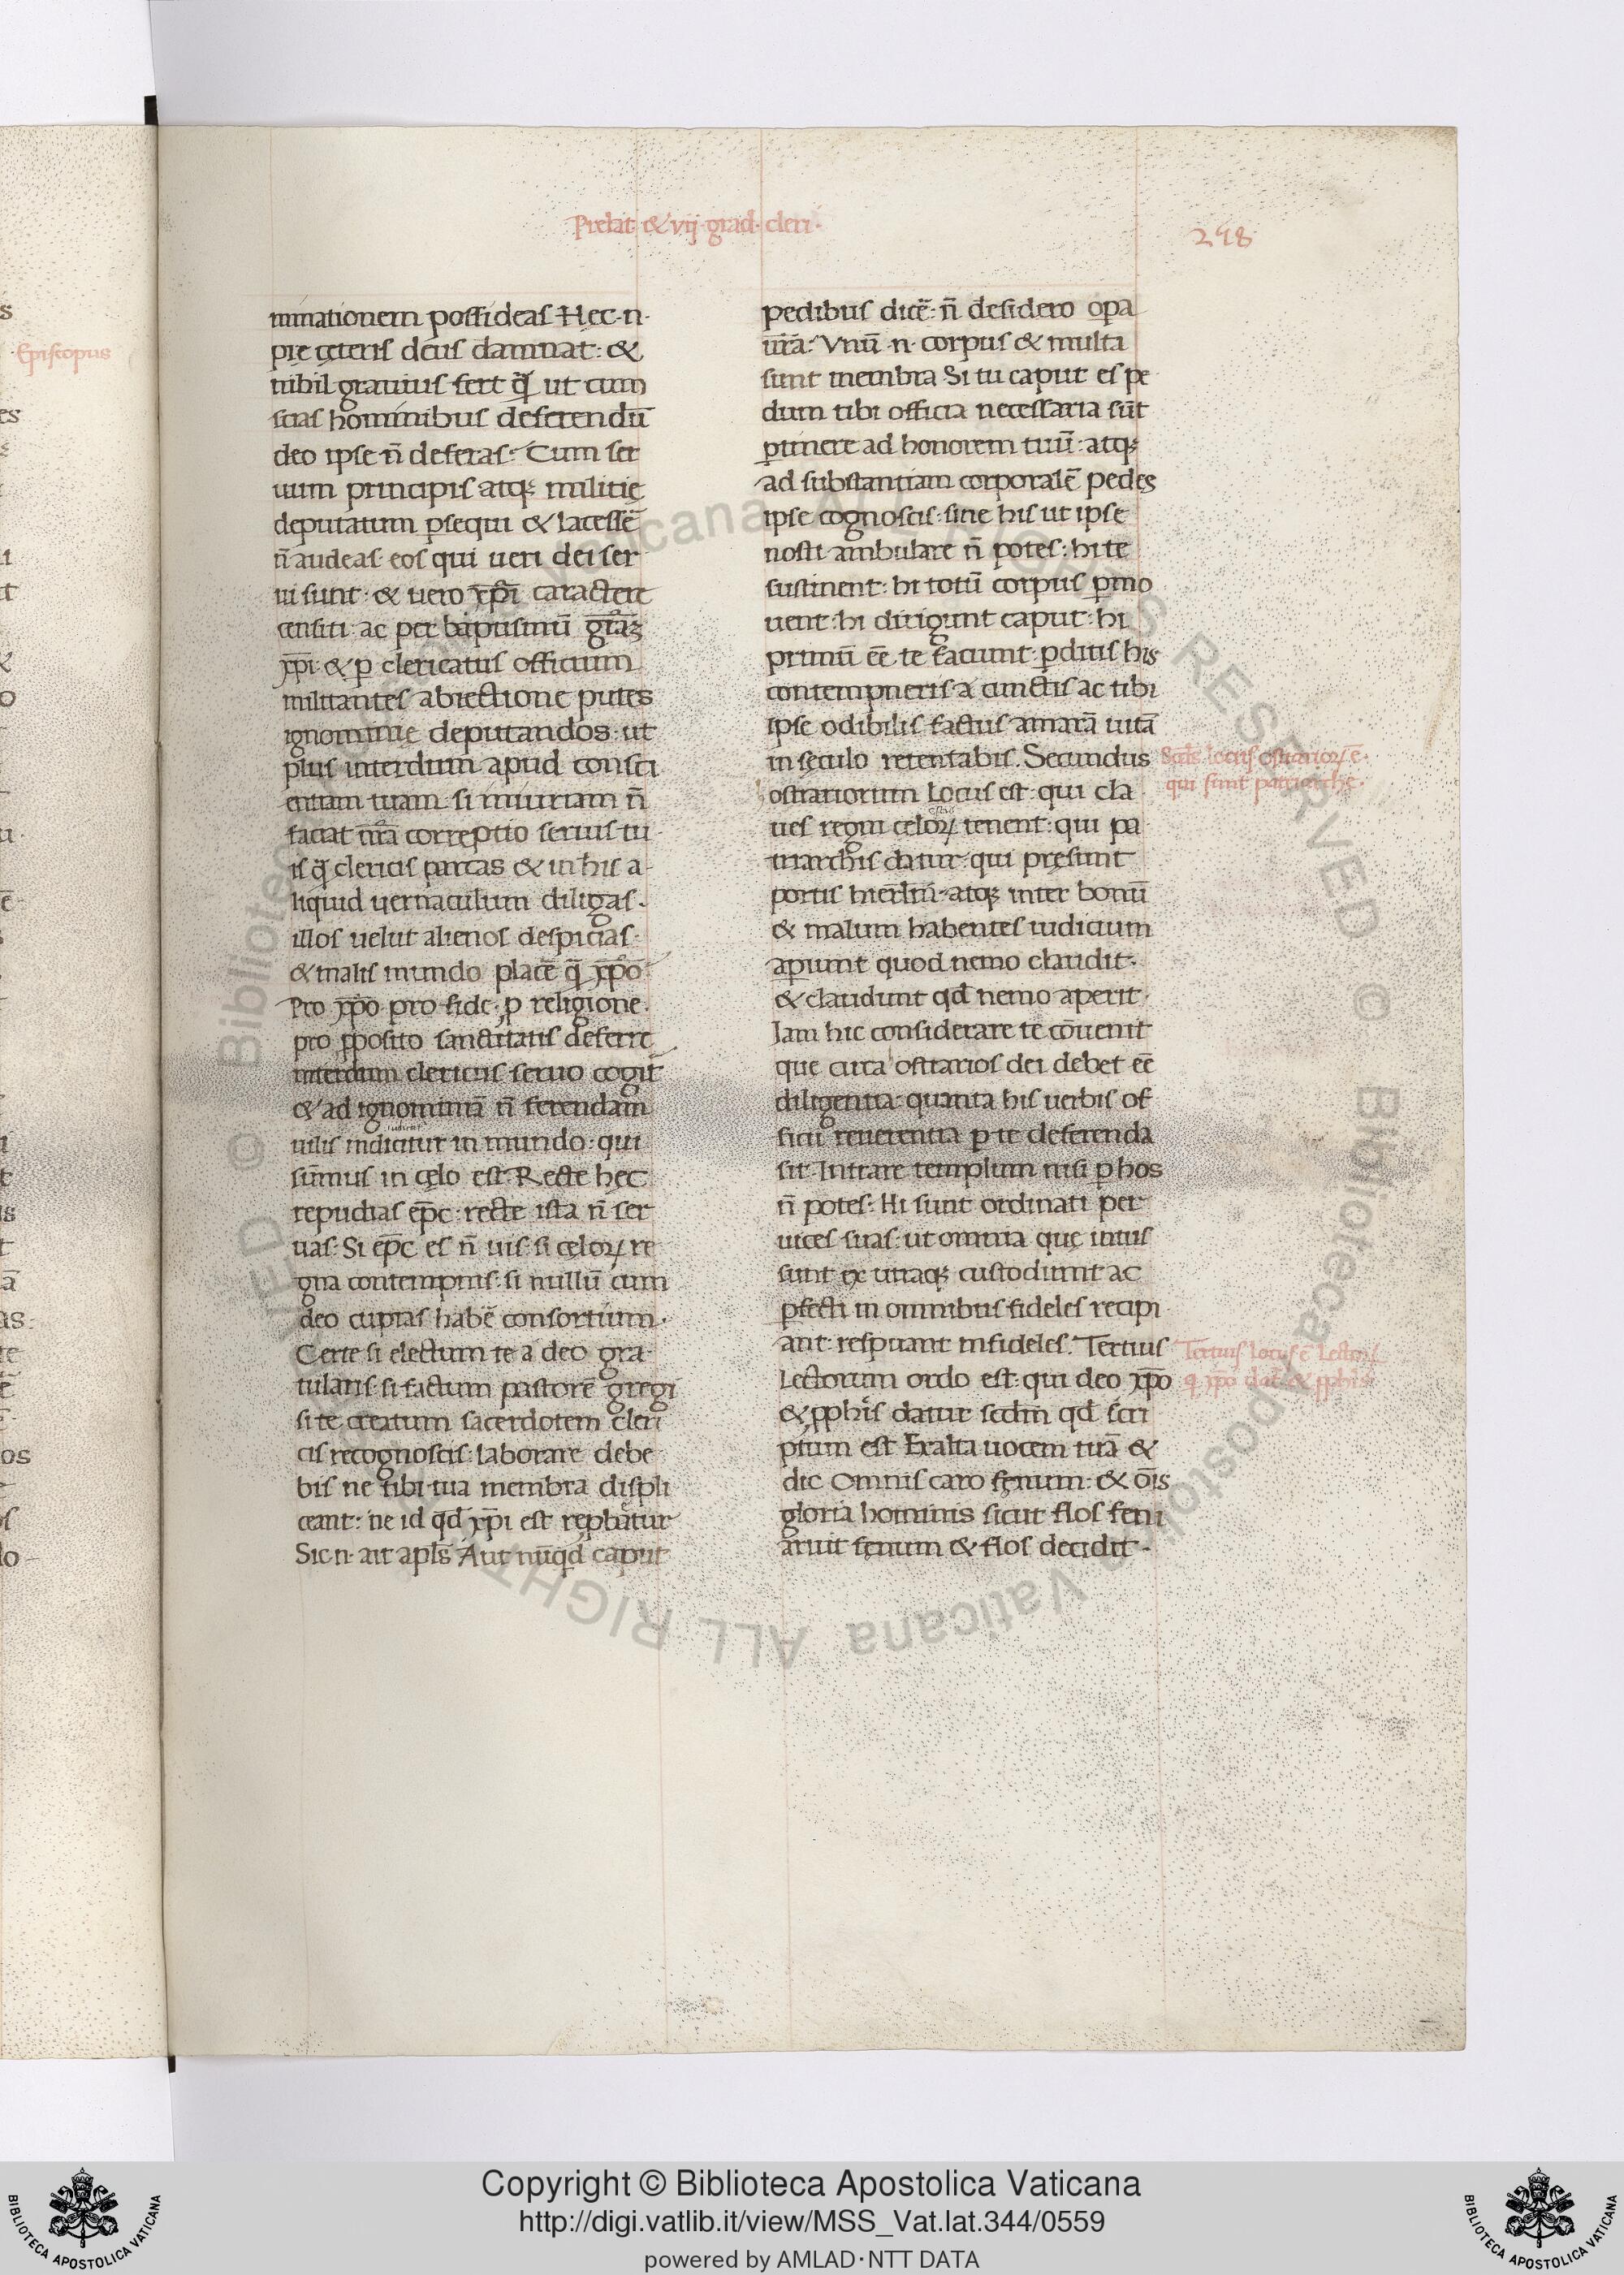 Prelat· & vij· grad· cleri·
298
Episcopus
minationem possideas Hec·n·
pre ceteris deus damnat: &
nihil grauius fert q̄ ut cum
scias hominibus deferendū
deo ipse n̄ deferas· Cum ser
uum principis atq; militie
deputatum psequi & lacessē
n̄ audeas· eos qui ueri dei ser
ui sunt· & uero xp̄i caractere
censiti· ac per baptismū
xp̄i· & p clericatus officium
militantes abiectione putes
ignominie deputandos· ut
plus interdum apud consci
entiam tuam· si iniuriam n̄
faciat nr̄a correptio seruis tu
is q̄ clericis parcas & in his a-
liquid uernaculum diligas·
illos uelut alienos despicias·
& malis mundo placē q̄ xp̄o·
Pro xp̄o· pro fide· p religione·
pro pposito sanctitatis deferre
interdum clericus seruo cogit
& ad ignominiā n̄ ferendam
uilis indicitur in mundo· qui
sūmus in celo est· Recte hec
repudias ep̄c· recte ista n̄ ser
uas· Si ep̄c es n̄ uis· si celoꝝ re
gna contempnis· si nullū cum
deo cupias habē consortium·
Certe si electum te a deo gra-
tularis· si factum pastorē gregi
si te creatum sacerdotem cleri
cis recognoscis· laborare debe
bis ne tibi tua membra displi
ceant: ne id qd̄ xp̄i est
Sic·n· ait apl̄s Aut nūqd caput
pedibus dicē· n̄ desidero opa
ur̄a· Vnū·n· corpus & multa
sunt membra Si tu caput es pe
dum tibi officia necessaria sūt
ptinere ad honorem tuū· atq;
ad substantiam corporalē pedes
ipse cognoscis· sine his ut ipse
nosti ambulare n̄ potes· hi te
sustinent· hi totū corpus pmo
uent· hi dirigunt caput· hi
primū eē te faciunt· pditis his
contempneris a cunctis ac tibi
ipse odibilis factus amarā uitā
in seculo retentabis. Secundus
ostiariorum Locus est· qui cla
ues regni celoꝝ tenent· qui pa
triarchis datur· qui presunt
portis hierl̄m· atq; inter bonū
& malum habentes iudicium
apiunt quod nemo claudit·
& claudunt qd̄ nemo aperit·
Iam hic considerare te cōuenit
que circa ostiarios dei debet eē
diligentia· quanta his uerbis of
ficii reuerentia p te deferenda
sit· Intrare templum nisi p hos
n̄ potes· Hi sunt ordinati per
uices suas· ut omnia que intus
sunt ex utraq; custodiunt ac
pfecti in omnibus fideles recipi
ant· respuant infideles. Tertius
Lectorum ordo est· qui deo xp̄o
& pphis datur sedm̄ qd̄ scri
ptum est Exalta uocem tuā &
dic Omnis caro fenum· & ōis
gloria hominis sicut flos feni
aruit fenum & flos decidit·
Scds locus ostiarioꝝ ē·
qui sunt patriarche·
Tertius locus ē Lectoꝝ
q xp̄o dat & pphis·
© Biblioteca Apostolica Vaticana ALL RIGHTS RESERVED © Biblioteca Apostolica Vaticana ALL RIGHTS RESERVED
Copyright © Biblioteca Apostolica Vaticana
http://digi.vatlib.it/view/MSS_Vat.lat.344/0559
powered by AMLAD·NTT DATA
BIBLIOTECA APOSTOLICA VATICANA
BIBLIOTECA APOSTOLICA VATICANA